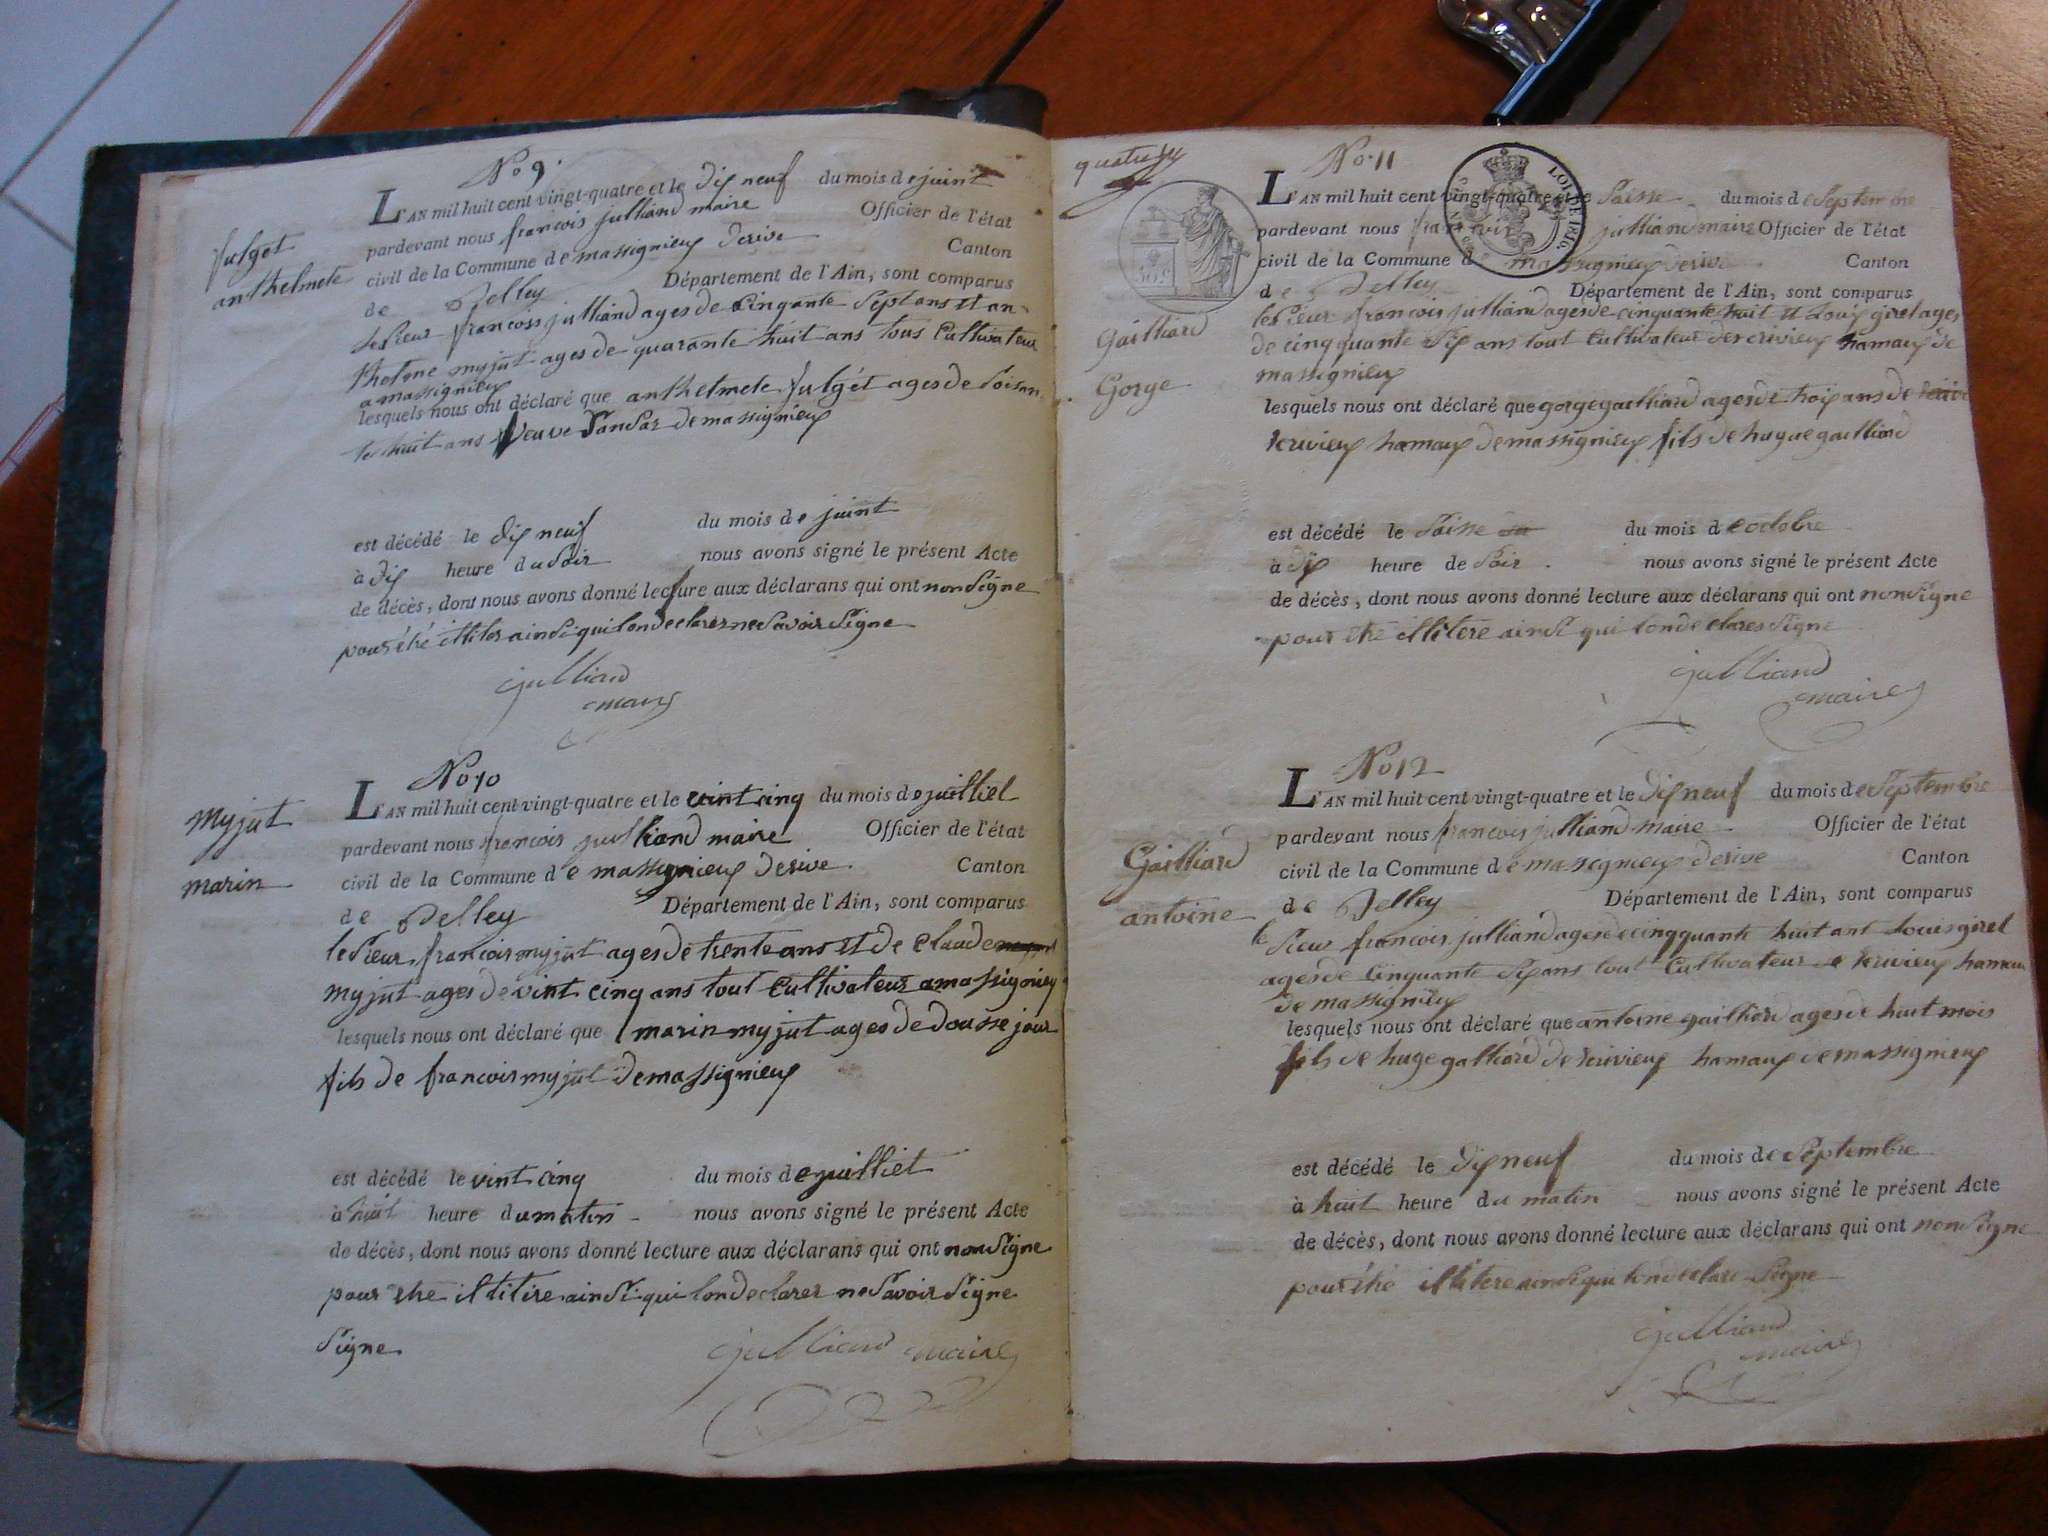 No 9.
fulget
anthelmete
L'AN mil huit cent vingt-quatre et le dix neuf du mois de juint
pardevant nous françois julliand maire Officier de l'état
civil de la Commune de massignieux derive Canton
de Belley Département de l'Ain, sont comparus
le sieur françois julliand ages de cinqante sept ans et an-
thelme myjut ages de quarante huit ans tous cultivateur
a massignieux
lesquels nous ont déclaré que anthelmete fulget ages de soisan
te huit ans veuve de massignieux
est décédé le dix neuf du mois de juint
à dix heure du soir nous avons signé le présent Acte
de décès, dont nous avons donné lecture aux déclarans qui ont non signe
pour été ainsi qui lon declarer ne savoir signe
julliand
maire
No 10
myjut
marin
L'AN mil huit cent vingt-quatre et le vint cinq du mois de juilliet
pardevant nous francois julliand maire Officier de l'état
civil de la Commune de massignieux derive Canton
de Belley Département de l'Ain, sont comparus
le sieur francois myjut ages de trente ans et de claude
myjut ages de vint cinq ans tout cultivateur a massignieux
lesquels nous ont déclaré que marin myjut ages de dousse jour
fils de francois myjut de massignieux
est décédé le vint cinq du mois de juilliet
à huit heure du matin nous avons signé le présent Acte
de décès, dont nous avons donné lecture aux déclarans qui ont non signe
pour etre illitire ainsi qui lon declarer ne savoir signe
signe
julliand maire
No 11
LOI DE 1816.
Gailliard
Gorge
L'AN mil huit cent vingt-quatre et le saisse du mois de Septembre
pardevant nous francois julliand maire Officier de l'état
civil de la Commune de massignieux derive Canton
de Belley Département de l'Ain, sont comparus
le sieur francois julliand ages de cinquante huit et Louis girel ages
de cinqquante six ans tout cultivateur de crivieux hamaux de
massignieux
lesquels nous ont déclaré que gorge gailliard ages de trois ans de
crivieux hamaux de massignieux fils de hugue gailliard
est décédé le saisse du mois de octobre
à dix heure de soir. nous avons signé le présent Acte
de décès, dont nous avons donné lecture aux déclarans qui ont non signe
pour etre illitere ainsi qui lon declares signe
julliand
maire
No 12
Gailliard
antoine
L'AN mil huit cent vingt-quatre et le dix neuf du mois de Septembre
pardevant nous francois julliand maire Officier de l'état
civil de la Commune de massignieux derive Canton
de Belley Département de l'Ain, sont comparus
le sieur francois julliand ages de cinqquante huit ant Louis girel
ages de cinquante six ans tout cultivateur de crivieux hamaux
de massignieux
lesquels nous ont déclaré que antoine gailliard ages de huit mois
fils de huge galliard de crivieux hamaux de massignieux
est décédé le dix neuf du mois de Septembre
à huit heure du matin nous avons signé le présent Acte
de décès, dont nous avons donné lecture aux déclarans qui ont non signe
pour été illitere ainsi qui lon declare signe
julliand
maire